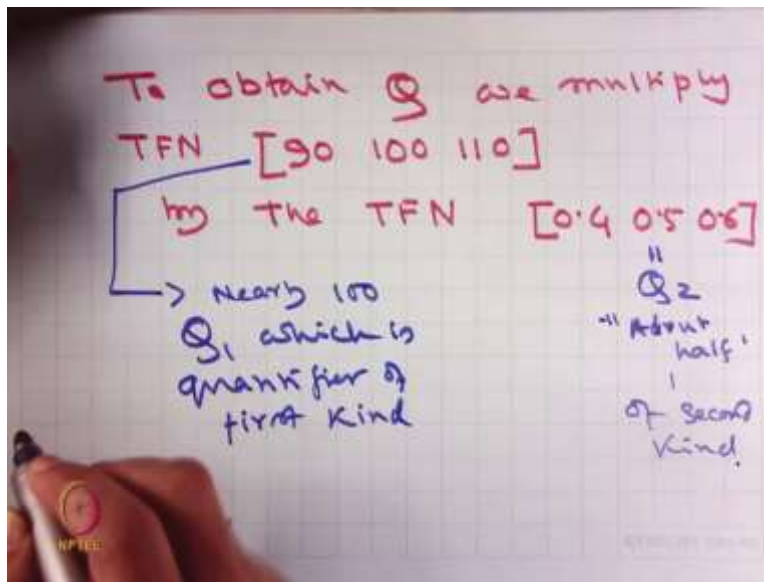 To obtain Q we multiply
TFN [90 100 110]
by the TFN [0.4 0.5 0.6]
"
→ Nearly 100
Q₁ which is
quantifier of
first kind
Q₂
"About
half"
of second
kind.
NPTEL